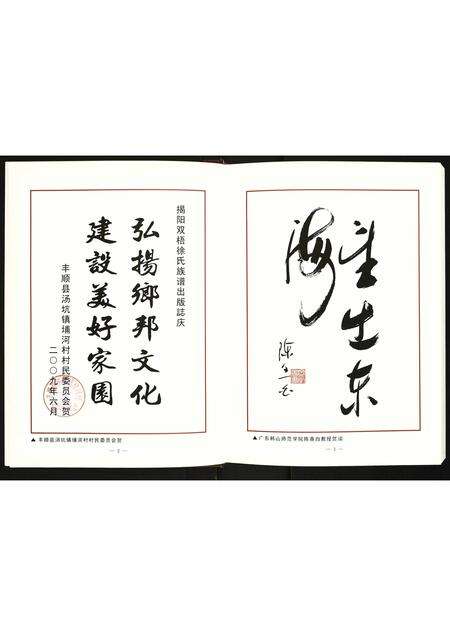 揭阳双梧徐氏族谱出版誌庆
弘揚鄉邦文化
建設美好家園
丰顺县汤坑镇埔河村村民委员会贺
二〇〇九年六月
▲丰顺县汤坑镇埔河村村民委员会贺
— 2 —
望出东
海
陈香白
▲广东韩山师范学院陈香白教授贺词
— 3 —